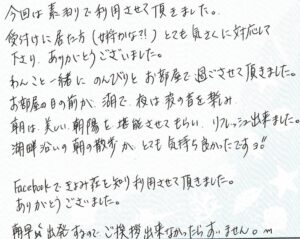 今回は素泊りで利用させて頂きました。
受付けに居た方(女将かな?!)とても気さくに対応して
下さり、ありがとうございました。
わんこと一緒にのんびりとお部屋で過ごさせて頂きました。
お部屋の目の前が、湖で、夜は波の音を楽しみ
朝は、美しい朝陽を堪能させてもらい、リフレッシュ出来ました。
湖畔沿いの朝の散歩が、とても気持ち良かったですョ!!
Facebookで を知り利用させて頂きました。
ありがとうございました。
朝早く出発するのでご挨拶出来なかったらすいません。m